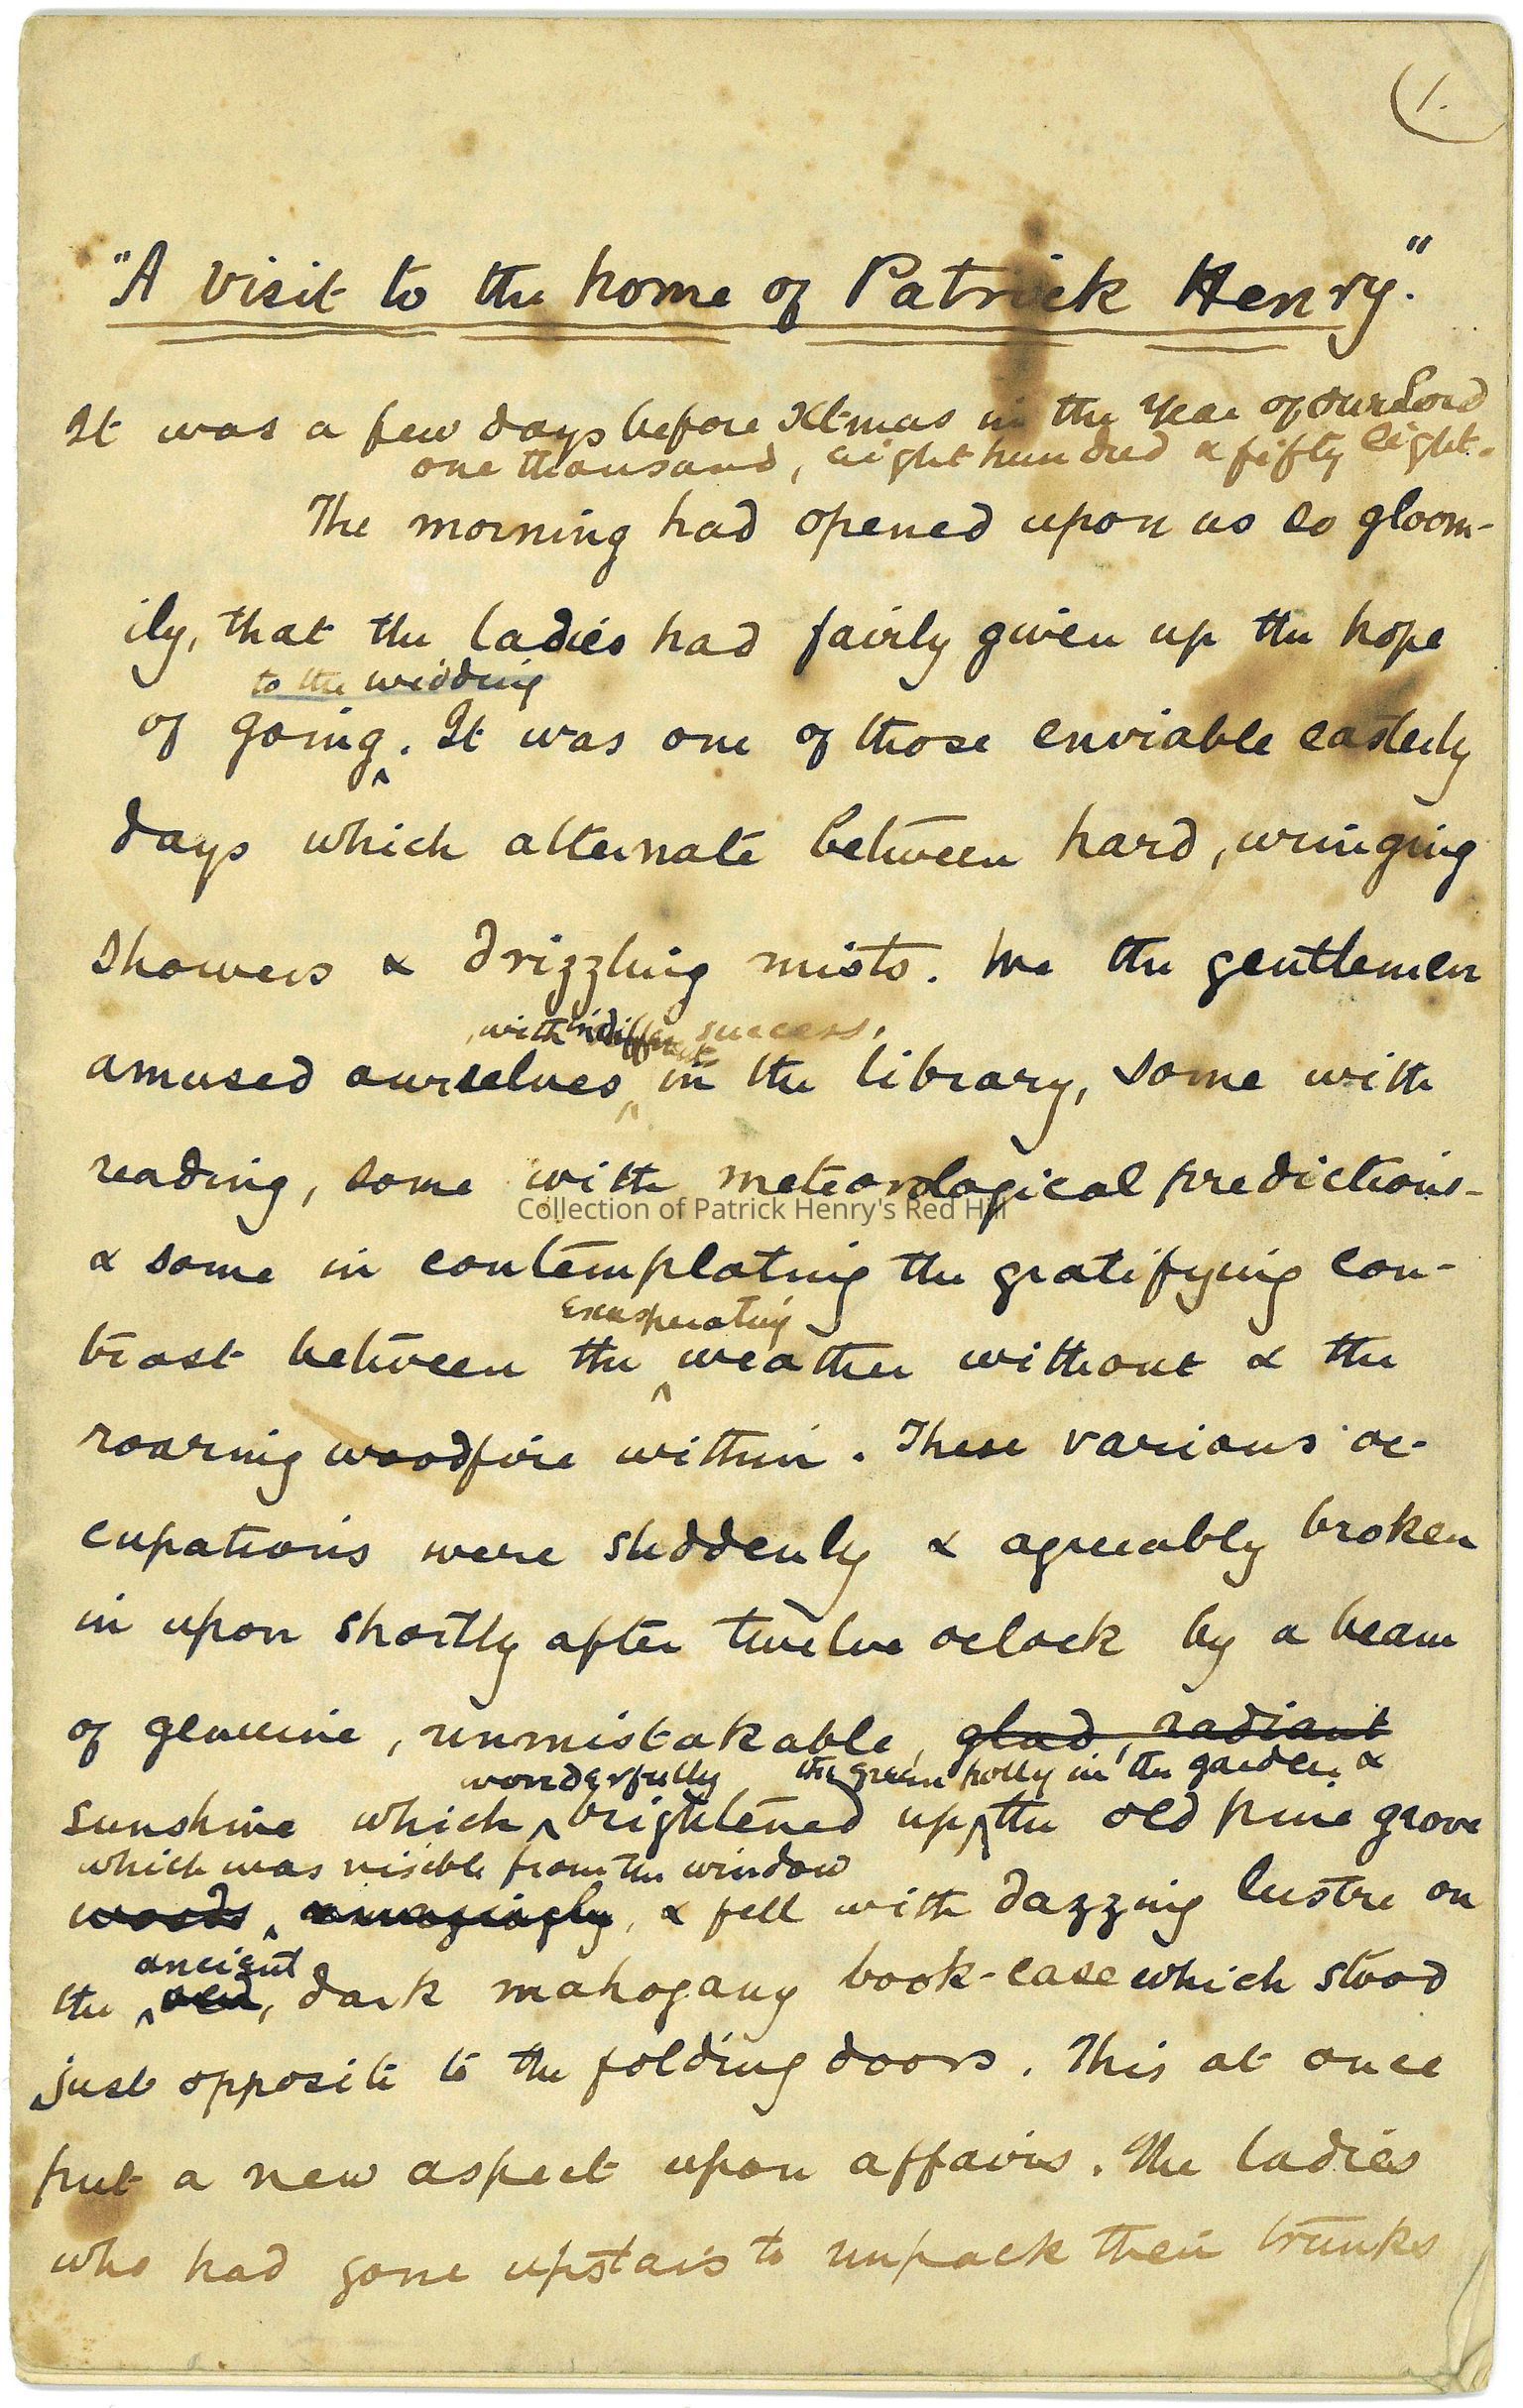 1.
"A visit to the home of Patrick Henry."
It was a few days before Xtmas in the Year of our Lord
one thousand, eight hundred & fifty eight.
The morning had opened upon us so gloom-
ily, that the ladies had fairly given up the hope
to the wedding
of going. It was one of those enviable easterly
days which alternate between hard, wringing
showers & drizzling mists. We the gentlemen
, with indifferent success,
amused ourselves in the library, some with
reading, some with meteorological predictions-
Collection of Patrick Henry's Red Hill
& some in contemplating the gratifying con-
exasperating
trast between the weather without & the
roaring woodfire within. These various oc-
cupations were suddenly & agreeably broken
in upon shortly after twelve oclock by a beam
of genuine, unmistakable, glad, radiant
wonderfully the green holly in the garden, &
sunshine which brightened up the old pine grove
which was visible from the window
woods, amazingly, & fell with dazzing lustre on
ancient
the old, dark mahogany book-case which stood
just opposite to the folding doors. This at once
put a new aspect upon affairs. The ladies
who had gone upstairs to unpack their trunks